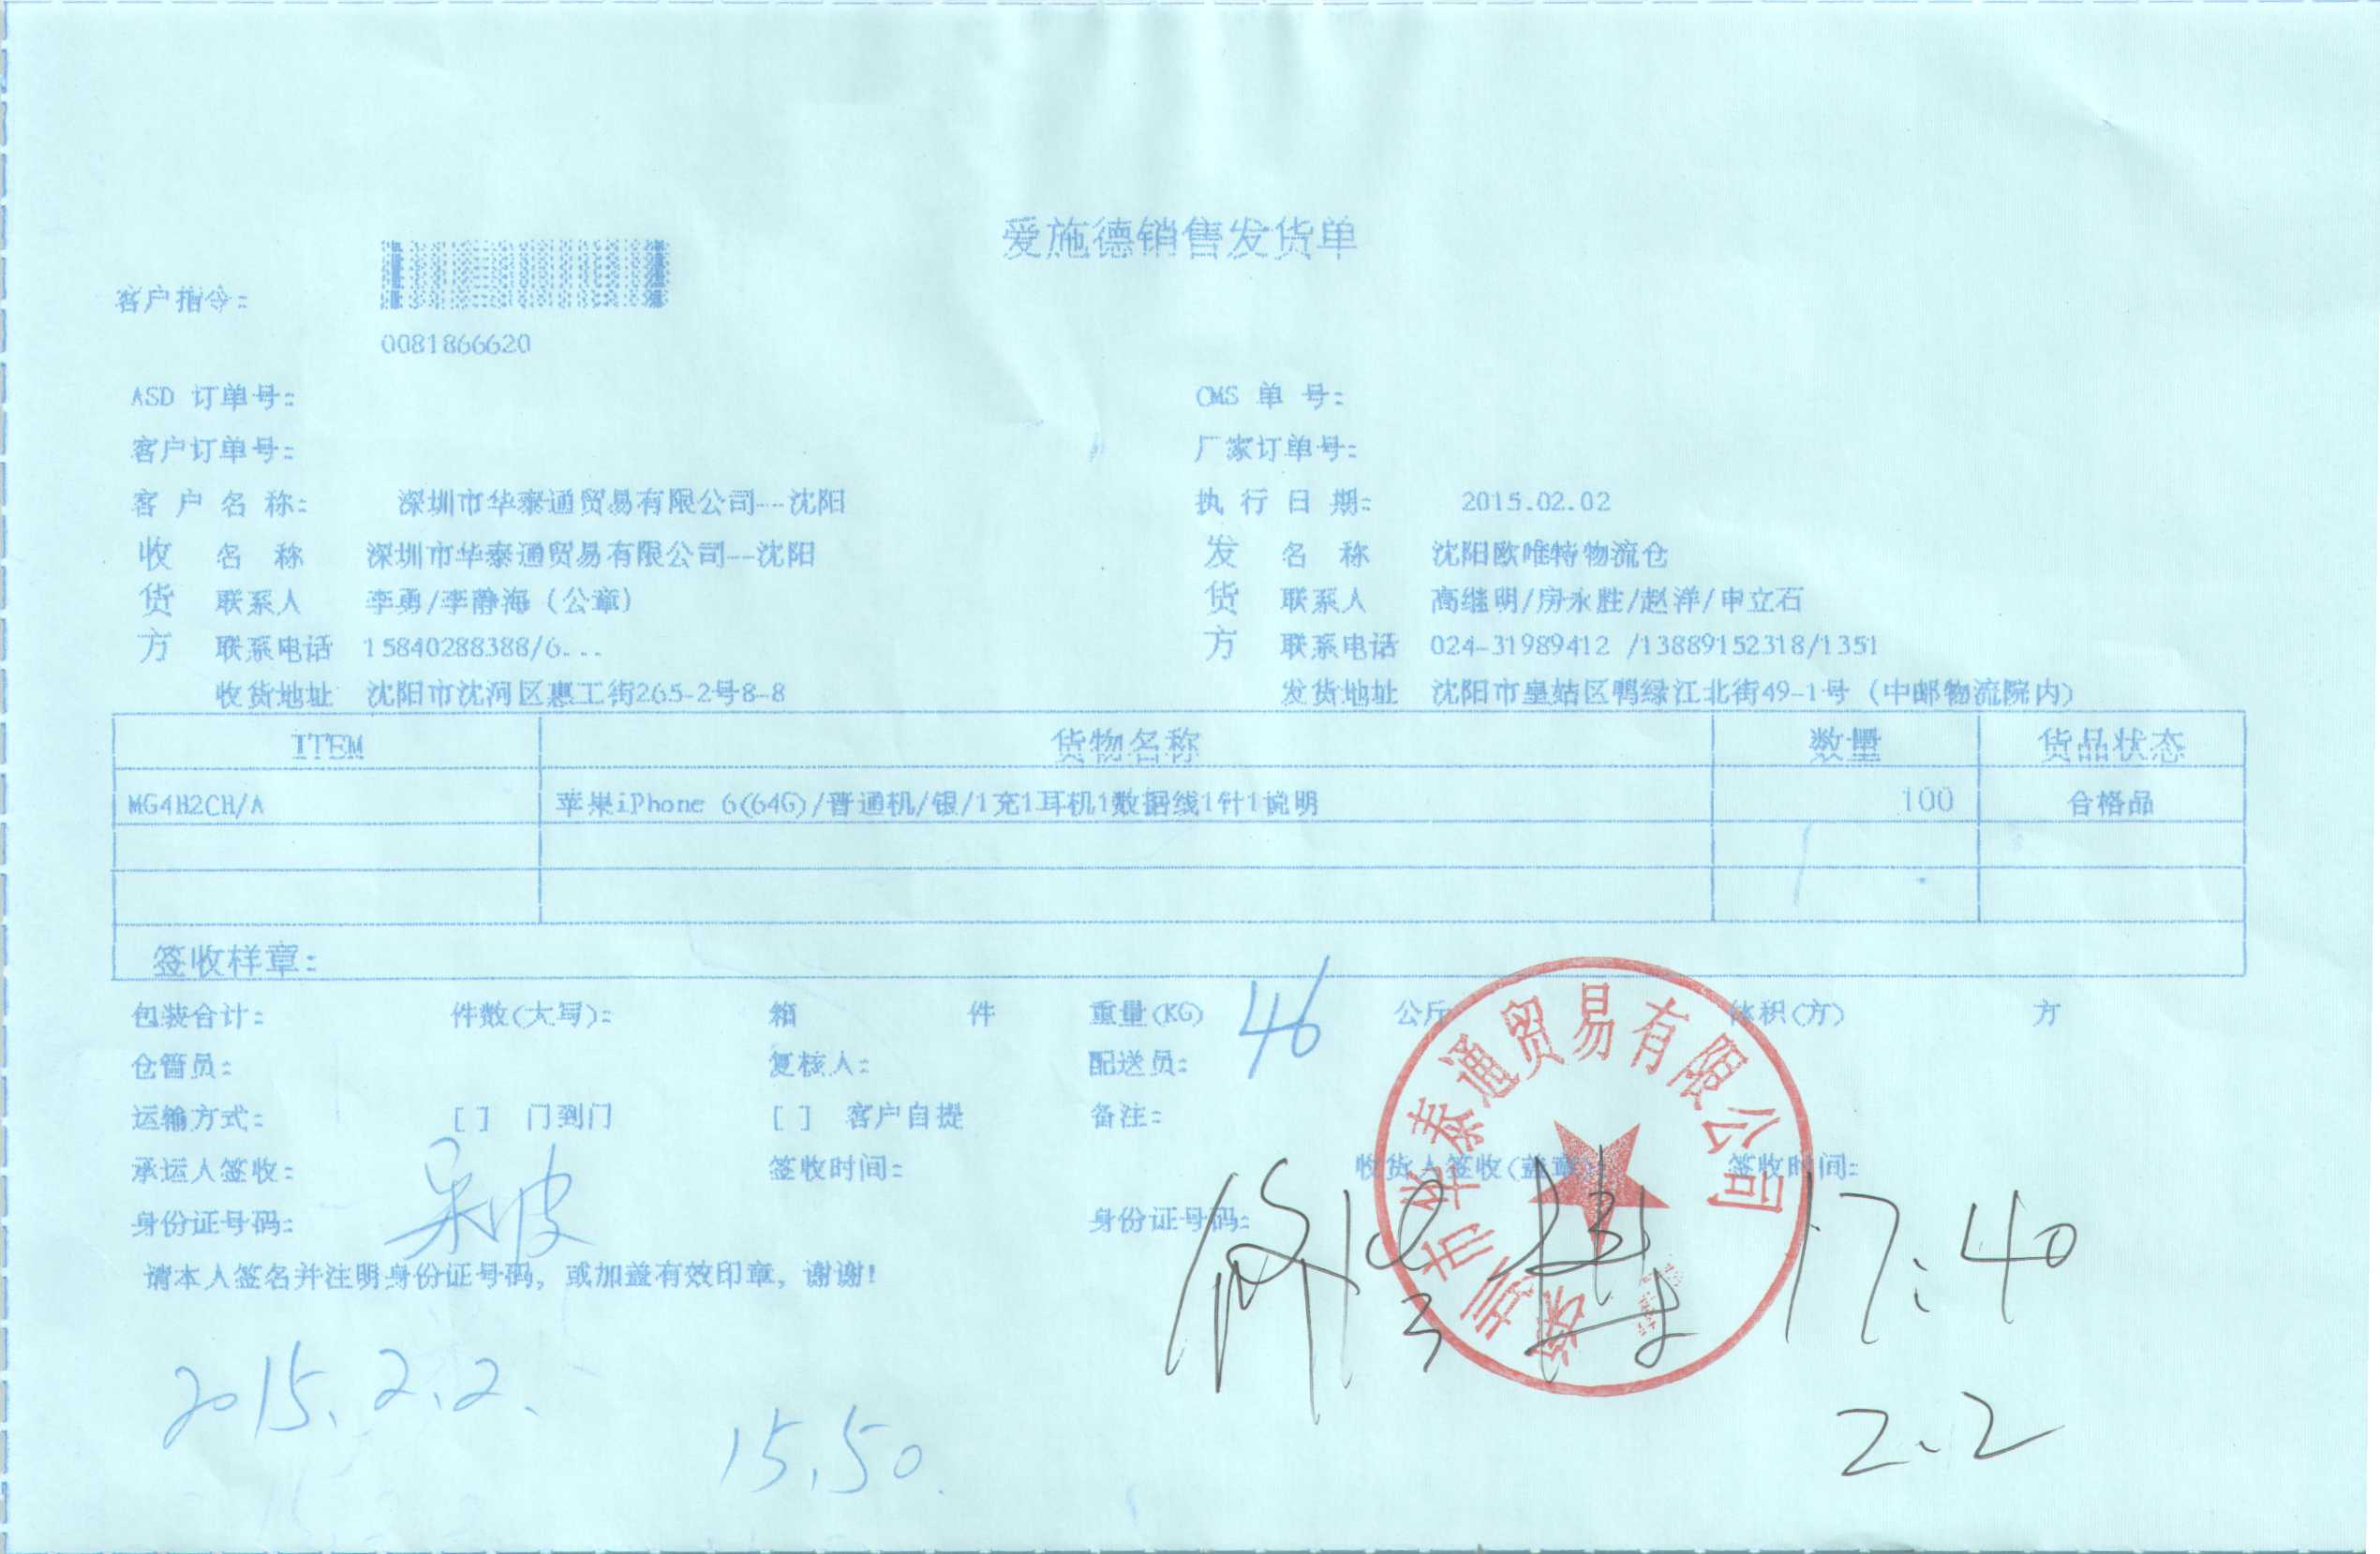 爱施德销售发货单
客户指令:
0081866620
ASD 订单号: CMS 单 号:
客户订单号: 厂家订单号:
客 户 名 称: 深圳市华泰通贸易有限公司---沈阳 执 行 日 期: 2015.02.02
收 名 称 深圳市华泰通贸易有限公司--沈阳 发 名 称 沈阳欧唯特物流仓
货 联系人 李勇/李静海(公章) 货 联系人 高继明/房永胜/赵洋/申立石
方 联系电话 15840288388/6... 方 联系电话 024-31989412 /13889152318/1351
收货地址 沈阳市沈河区惠工街265-2号8-8 发货地址 沈阳市皇姑区鸭绿江北街49-1号(中邮物流院内)
ITEM 货物名称 数量 货品状态
MG4H2CH/A 苹果iPhone 6(64G)/普通机/银/1充1耳机1数据线1针1说明 100 合格品
签收样章:
包装合计: 件数(大写): 箱 件 重量(KG) 46 公斤 体积(方) 方
仓管员: 复核人: 配送员:
运输方式: [ ] 门到门 [ ] 客户自提 备注:
承运人签收: 签收时间: 收货人签收(盖章): 签收时间:
身份证号码: 身份证号码: 17:40
请本人签名并注明身份证号码，或加盖有效印章，谢谢!
2015.2.2. 15.50 2.2
深圳市华泰通贸易有限公司